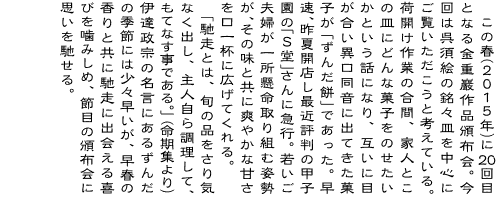 この春（２０１５年）に20回目
となる金重巌作品頒布会。今
回は呉須絵の銘々皿を中心に
ご覧いただこうと考えている。
荷開け作業の合間、家人とこ
の皿にどんな菓子をのせたい
かという話になり、互いに目
が合い異口同音に出てきた菓
子が「ずんだ餅」であった。早
速、昨夏開店し最近評判の甲子
園の「Ｓ堂」さんに急行。若いご
夫婦が一所懸命取り組む姿勢
が、その味と共に爽やかな甘さ
を口一杯に広げてくれる。
「馳走とは、旬の品をさり気
なく出し、主人自ら調理して、
もてなす事である。」（命期集より）
伊達政宗の名言にあるずんだ
の季節には少々早いが、早春の
香りと共に馳走に出会える喜
びを噛みしめ、節目の頒布会に
思いを馳せる。